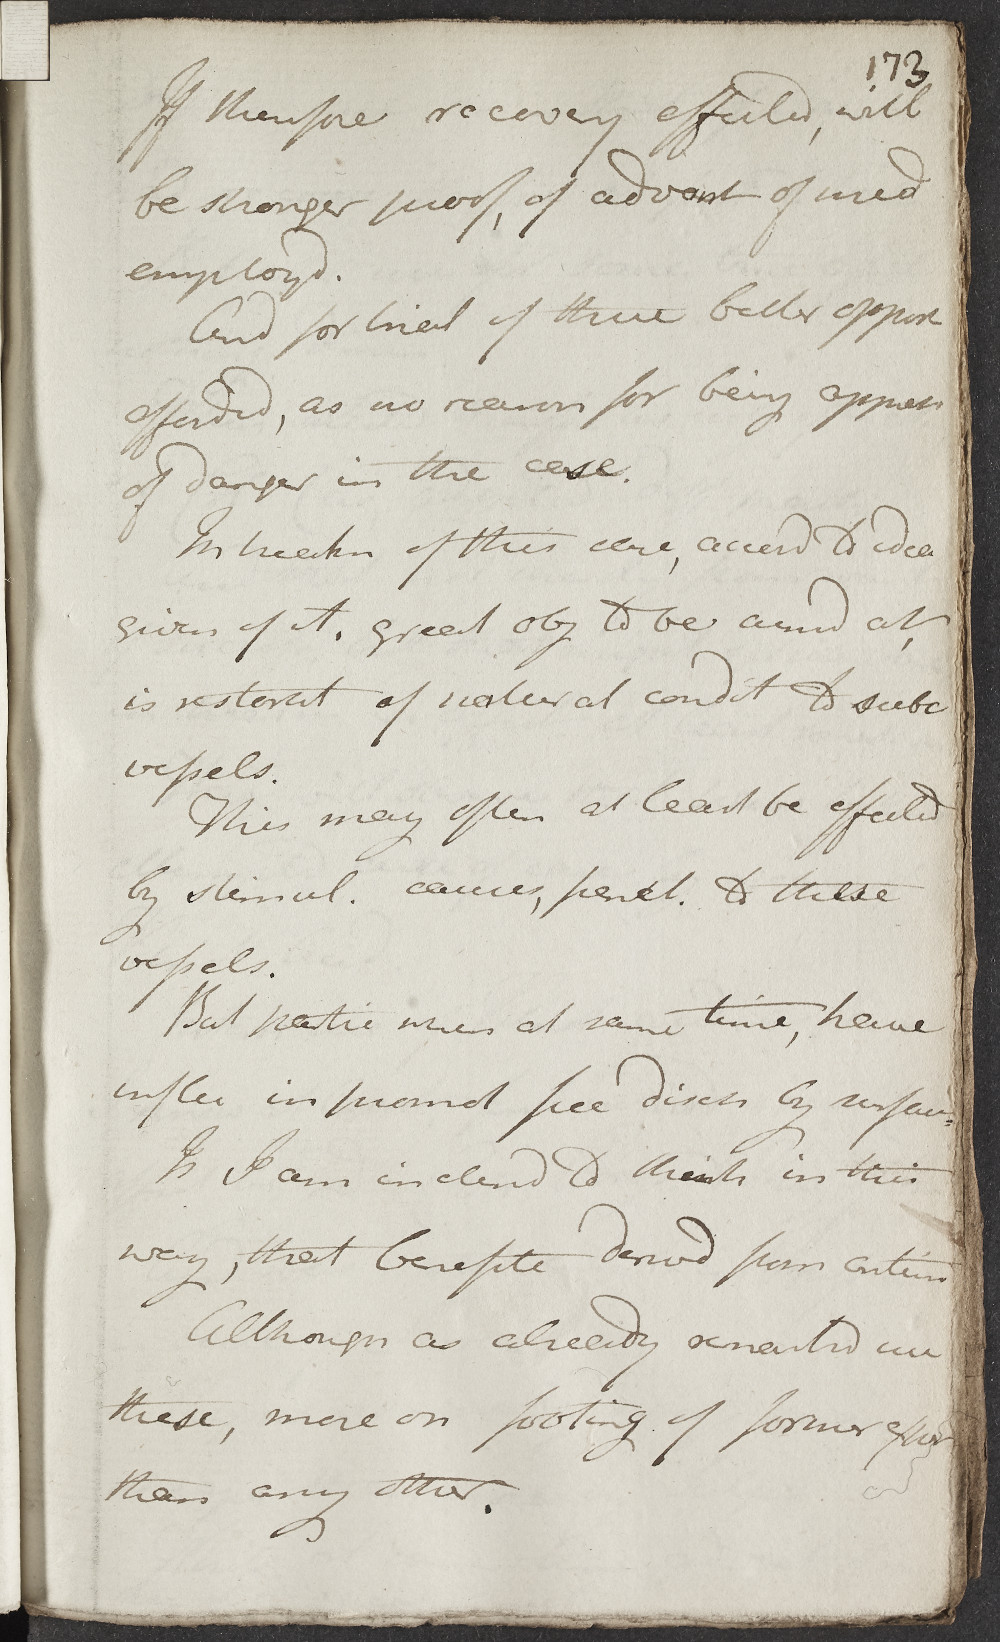 173
If therefore recovery effected, will
be stronger proof, of advant of med
employd.
And for trial of these better opport
afforded, as no reason for being appreh
of danger in the case.
In treatm of this case, accord to idea
given of it. great obj to be aimd at,
is restorat of natural condit to subc
vessels.
This may often at least be effected
by stimul. causes, penet. to these
vessels.
But partic when at same time, have
influ in promot free disch by surface
It I am inclend to think in this
way, that benefite derivd from antim
Although as already remarkd use
these, more on footing of former exper
than any other.